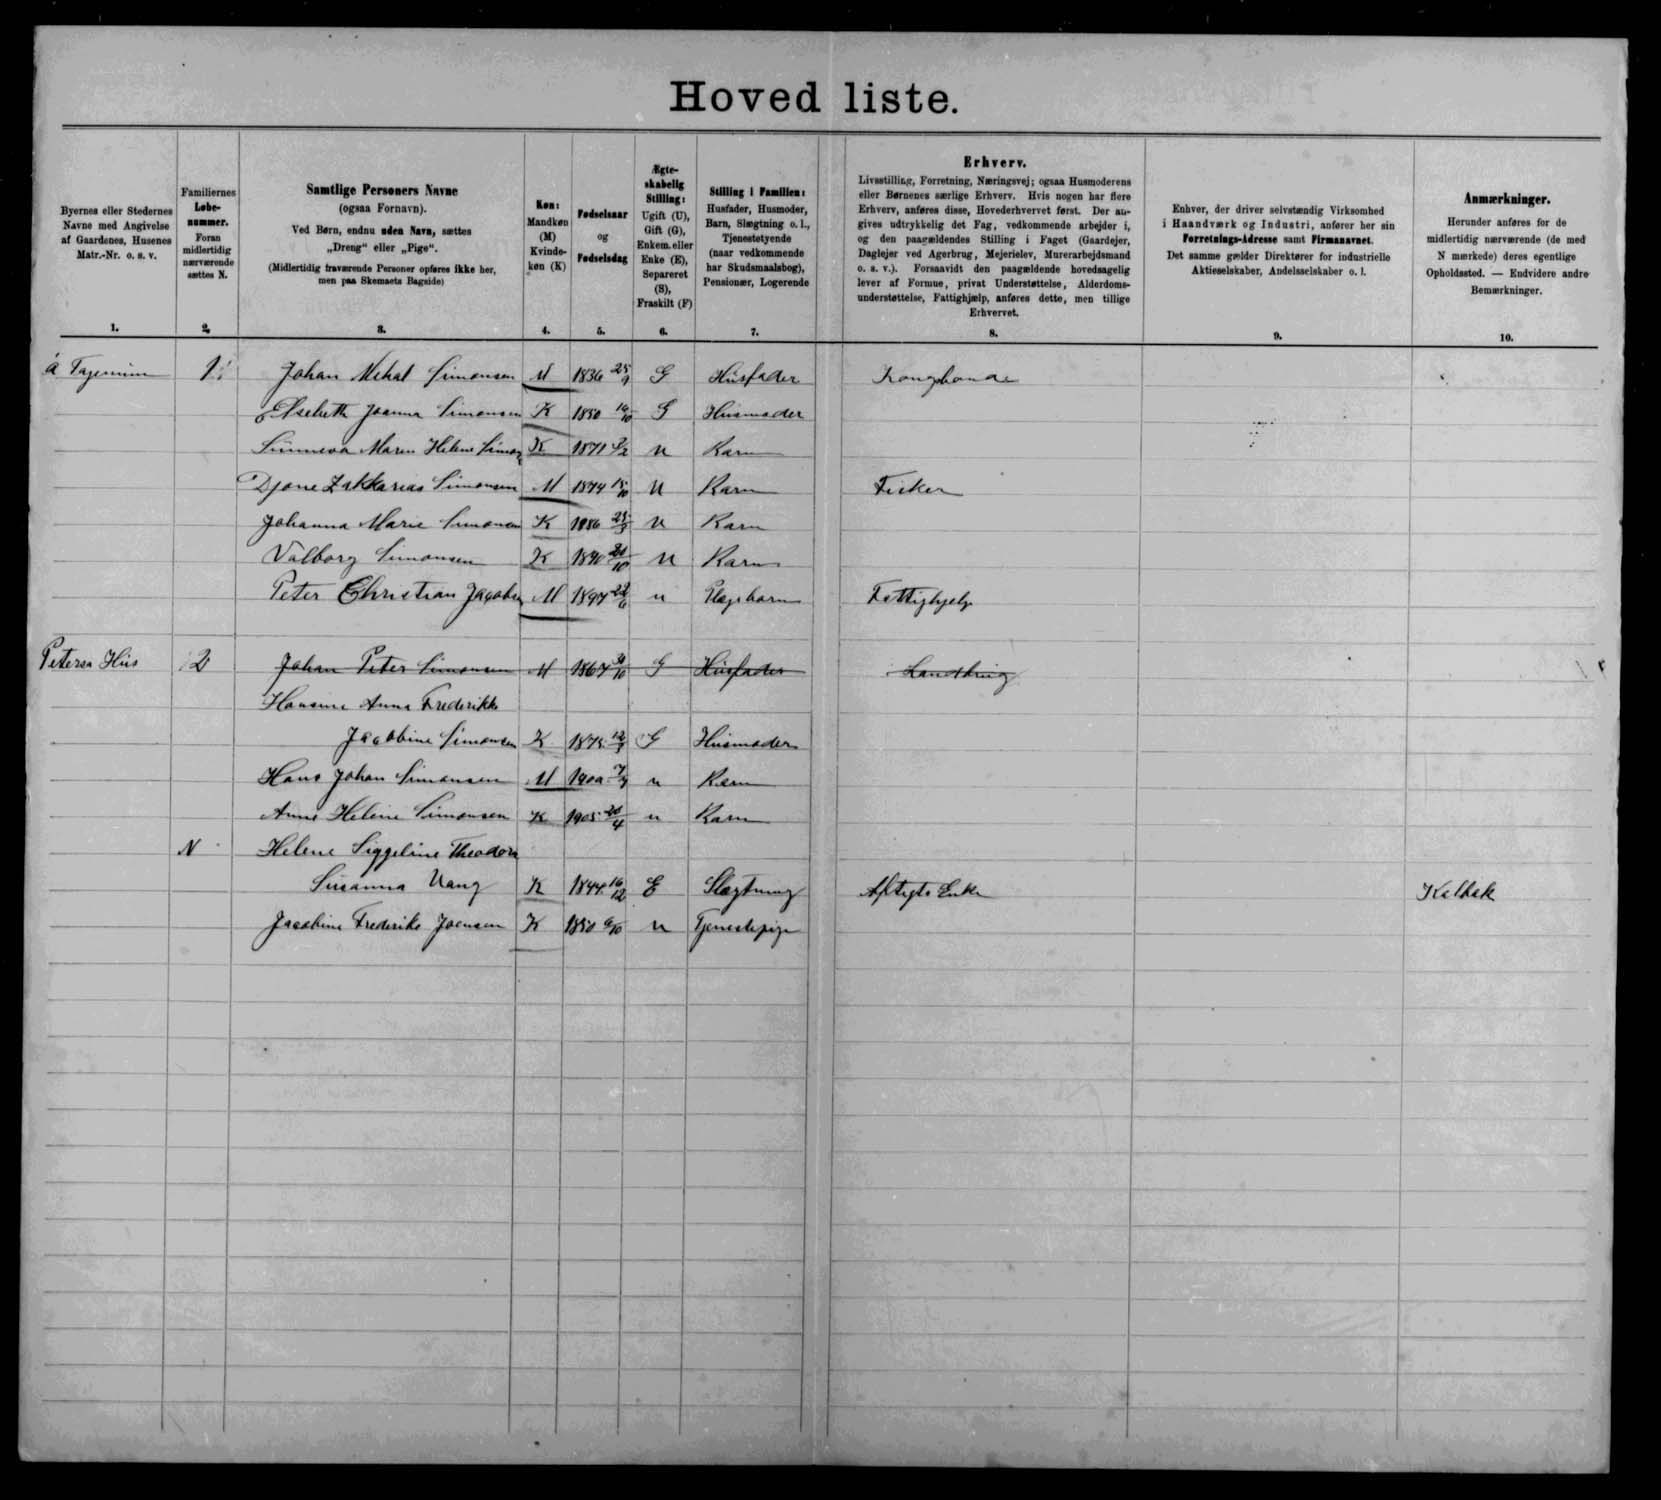 Hoved liste.
Byernes eller Stedernes
Navne med Angivelse
af Gaardenes, Husenes
Matr.-Nr. o. s. v.
1.
Familiernes
Løbe-
nummer.
Foran
midlertidig
nærværende
sættes N.
2.
Samtlige Personers Navne
(ogsaa Fornavn).
Ved Børn, endnu uden Navn, sættes
„Dreng" eller „Pige".
(Midlertidig fraværende Personer opføres ikke her,
men paa Skemaets Bagside)
3.
Køn:
Mandkøn
(M)
Kvinde-
køn (K)
4.
Fødselsaar
og
Fødselsdag
5.
Ægte-
skabelig
Stilling:
Ugift (U),
Gift (G),
Enkem. eller
Enke (E),
Separeret
(S),
Fraskilt (F)
6.
Stilling i Familien:
Husfader, Husmoder,
Barn, Slægtning o. l.,
Tjenestetyende
(naar vedkommende
har Skudsmaalsbog),
Pensionær, Logerende
7.
Erhverv.
Livsstilling, Forretning, Næringsvej; ogsaa Husmoderens
eller Børnenes særlige Erhverv. Hvis nogen har flere
Erhverv, anføres disse, Hovederhvervet først. Der an-
gives udtrykkelig det Fag, vedkommende arbejder i,
og den paagældendes Stilling i Faget (Gaardejer,
Daglejer ved Agerbrug, Mejerielev, Murerarbejdsmand
o. s. v.). Forsaavidt den paagældende hovedsagelig
lever af Formue, privat Understøttelse, Alderdoms-
understøttelse, Fattighjælp, anføres dette, men tillige
Erhvervet.
8.
Enhver, der driver selvstændig Virksomhed
i Haandværk og Industri, anfører her sin
Forretnings-Adresse samt Firmanavnet.
Det samme gælder Direktører for industrielle
Aktieselskaber, Andelsselskaber o. l.
9.
Anmærkninger.
Herunder anføres for de
midlertidig nærværende (de med
N mærkede) deres egentlige
Opholdssted. — Endvidere andre
Bemærkninger.
10.
1 Johan Mikal Simonsen M 1836 25/9 G Húsfader Kongsbonde
Elsebeth Joanna Simonsen K 1850 G Husmoder
Sunneva Maren Helene K 1871 U Barn
Djone Zakkarias Simonsen M 1874 15/10 U Barn Fisker
Johanna Marie Simonsen K 1886 25/3 U Barn
Valborg Simonsen K 1890 U Barn
Peter Christian Jacobsen M 1897 U Plejebarn Fattighjelp
Petersa Hús 2 Johan Peter Simonsen M 1867 G Húsfader
Hansine Anna Frederikke
Jacobine Simonsen K 1875 12/3 G Húsmoder
Hans Johan Simonsen M U Barn
Anne Helene Simonsen K 1905 U Barn
N Helene Siggeline Theodora
Susanna Vang K 1844 16/12 E Slægtning Aftægts Enke Kalbak
Jacobine Frederike Joensen K 1850 U Tjenestepige